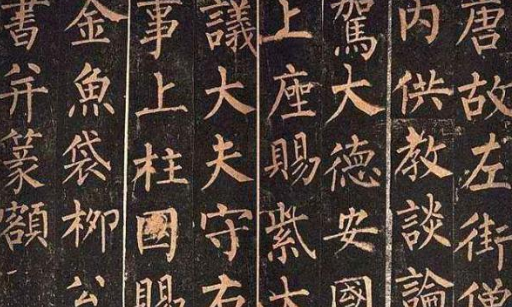 唐故左街僧
内供教談論
駕大德安國
上座賜紫大
議大夫守右
事上柱國賜
金魚袋柳公
書并篆額